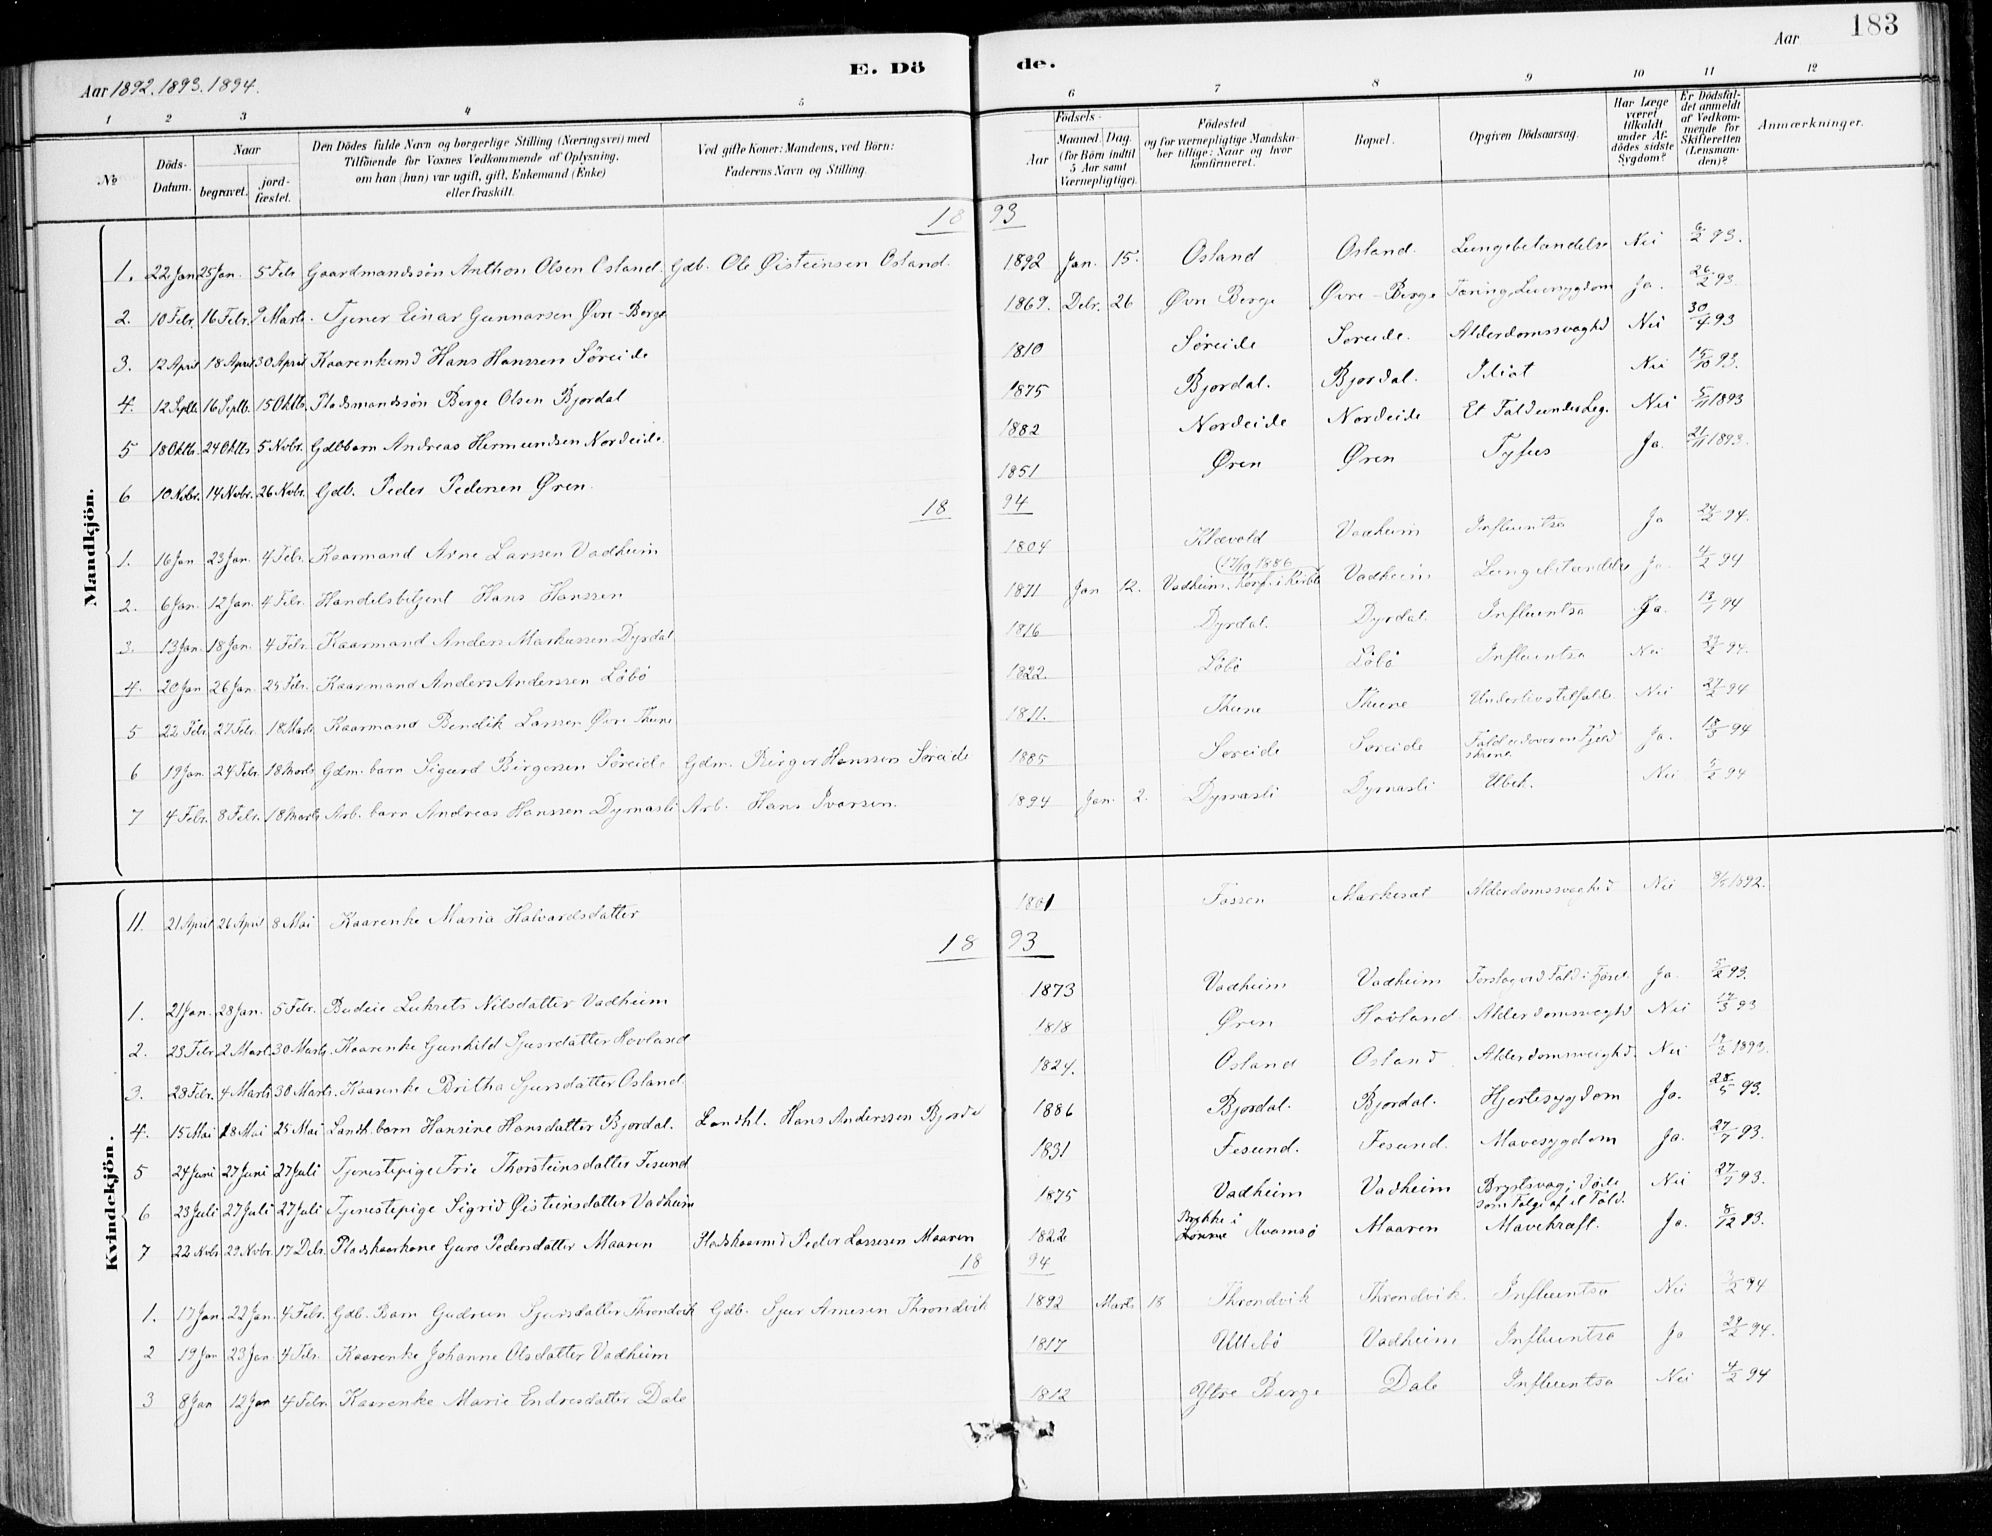 183
Aar 1892. 1893. 1894.
E. Dö de.
Aar
1 2 3 4 5 6 7 8 9 10 11 12
№
Döds-Datum.
Naar begravet. jordfæstet.
Den Dödes fulde Navn og borgerlige Stilling (Næringsvei) med Tilföiende for Voxnes Vedkommende af Oplysning, om han (hun) var ugift, gift, Enkemand (Enke) eller fraskilt.
Ved gifte Koner: Mandens, ved Börn: Faderens Navn og Stilling.
Födsels- Aar Maaned. Dag. (for Börn indtil 5 Aar samt Værnepligtige).
Födested og for værnepligtige Mandskaber tillige: Naar og hvor konfirmeret.
Bopæl.
Opgiven Dödsaarsag.
Har Læge været tilkaldt under Afdödes sidste Sygdom?
Er Dödsfaldet anmeldt af Vedkommende for Skifteretten (Lensmanden)?
Anmærkninger.
Mandkjön.
18 93
1. 22 Jan 25 Jan. 5 Febr Gaardmandssön Anthon Olsen Osland. Gdb. Ole Øisteinsen Osland. 1892 Jan. 15. Osland Osland. Lungebetændelse Nei 6/2 93.
2. 10 Febr. 16 Febr. 9 Marts. Tjener Einar Gunnarsen Øvre-Berge 1869. Debr. 26 Øvre Berge Øvre-Berge Tæring, Leversygdom Ja. 26/2 93.
3. 12 April 18 April 30 April Kaarenkemd Hans Hanssen Söreide 1810 Söreide Soreide. Alderdomssvaghd Nei 30/4 93
4. 12 Septb. 16 Septb. 15 Oktb. Pladsmandssön Berge Olsen Bjordal 1875 Bjordal. Bjordal. Idiot Nei 15/10 93.
5 18 Oktb. 24 Oktb 5 Novbr. Gdbbarn Andreas Hermundsen Nordeide. 1882 Nordeide Nordeide Et Fald under Leg. Nei 5/11 1893
6 10 Novbr. 14 Novbr. 26 Novbr. Gdb. Peder Pedersen Øren. 1851 Øren Øren Tyfus Ja. 21/11 1893.
18 94
1. 16 Jan 23 Jan. 4 Febr. Kaarmand Arne Larssen Vadheim 1804 Klævold Vadheim Influentsa Ja 24/2 94.
2. 6 Jan. 12 Jan. 4 Febr. Handelsbetjent Hans Hanssen 1871 Jan 12. Vadheim, Konf. i Kirkebö (17/10 1886 Vadheim Lungebetændelse Ja. 4/2 94
3. 13 Jan. 18 Jan. 4 Febr. Kaarmand Anders Markussen Dyrdal 1816 Dyrdal. Dyrdal. Influentsa Ja. 18/1 94
4. 20 Jan 26 Jan. 25 Febr. Kaarmand Anders Anderssen Löbö 1822. Löbö Löbö Influentsa Nei 94.
5 22 Febr. 27 Febr. 18 Marts Kaarmand Bendik Larssen Øvre Thune 1811. Thune Thune Underlivstilfælde Nei 27/2 94
6 19 Jan. 24 Febr. 18 Marts Gdm. barn Sigurd Birgersen Söreide Gdm. Birger Hanssen Söreide 1885 Soreide Soreide Fald udover en Fjeldskrent Ja. 18/3 94
7 4 Febr. 8 Febr. 18 Marts Arb. barn Andreas Hanssen Dymasli Arb. Hans Ivarsen. 1894 Jan. 2. Dymasli Dymasli Ubek. Nei 94
Kvindekjön.
11. 21 April 26 April 8 Mai Kaarenke Maria Halvardsdatter 1801 Fossen Markesæt Alderdomssvaghed Nei 8/5 1892.
18 93
1. 21 Jan. 28 Jan. 5 Febr. Budeie Lukrets Nilsdatter Vadheim 1873 Vadheim Vadheim Forslag ved Fald i Fjöset Ja. 5/2 93.
2. 23 Febr 2 Mart. 30 Marts. Kaarenke Gunhild Sjursdatter Hovland 1818 Øren Hovland Alderdomssvaghd Nei 93
3. 28 Febr. 4 Marts 30 Marts. Kaarenke Britha Sjursdatter Osland. 1824. Osland Osland Alderdomssvaighd. Nei 1893.
4. 15 Mai 18 Mai 25 Mai Landh. barn Hansine Hansdatter Bjordal. Landhl. Hans Anderssen Bjorda 1886 Bjordal. Bjordal. Hjertesygdom Ja. 28/5 93.
5 24 Juni 27 Juni 27 Juli Tjenestepige Frie Thorsteinsdatter Fesund 1831 Fesund. Fesund. Mavesygdom Ja. 27/7 93.
6 23 Juli 27 Juli 27 Juli Tjenestepige Sigrid Øisteinsdatter Vadheim 1875 Vadheim Vadheim Brystsvag; Döde som Fölge af et Fald. Nei 27/7 93.
7 22 Nvbr. 29 Nvbr. 17 Debr. Pladskaarkone Guro Pedersdatter Maaren Pladskaarmd Peder Lassesen Maaren 1822 Brekke i Kvamsö Maaren Mavekræft. Ja. 8/12 93.
18 94
1. 17 Jan 22 Jan. 4 Febr. Gdb. Barn Gudrun Sjursdatter Throndvik Gdb. Sjur Arnesen Throndvik 1892 Marts 18 Throndvik Throndvik. Influentsa Nei 94
2 19 Jan 23 Jan. 4 Febr. Kaarenke Johanne Olsdatter Vadheim 1817 Ullebö Vadheim Influentsa Ja 24/2 94.
3 8 Jan 12 Jan 4 Febr. Kaarenke Marie Endresdatter Dale 1812 Ytre Berge Dale Influentsa Nei 4/2 94